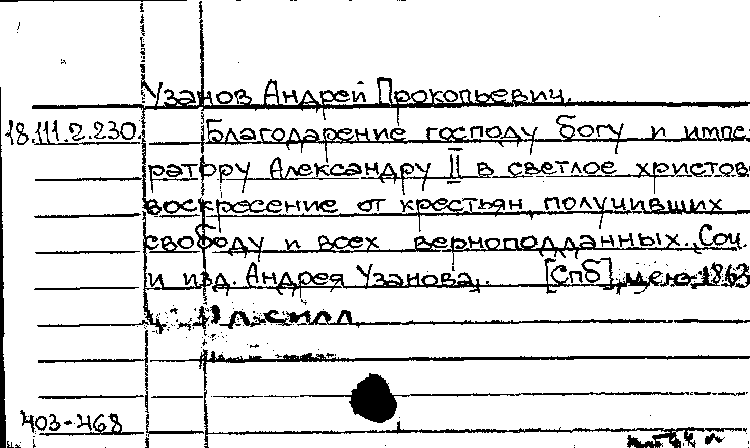 Узанов Андрей Прокопьевич.
18.111.2.230. Благодарение господу богу и импе-
ратору Александру II в светлое христов
воскресение от крестьян, получивших
свободу и всех верноподданных. Соч.
и изд. Андрея Узанова. [Спб], 1863
л. с илл.
403-468